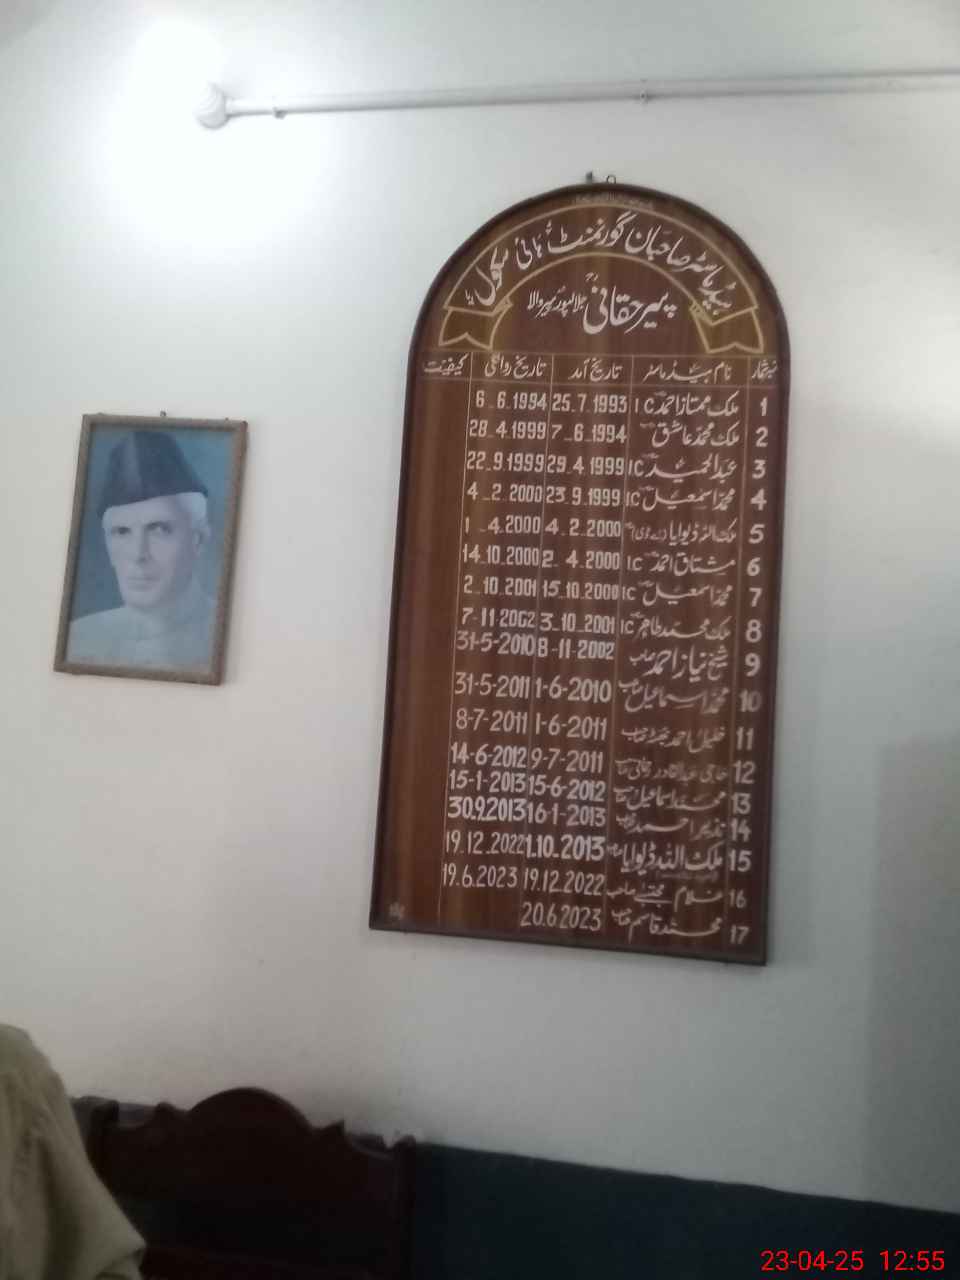 ہیڈ ماسٹر صاحبان گورنمنٹ ہائی سکول
پیر حقانیؒ جلالپور پیروالا
نمبرشمار نام ہیڈ ماسٹر تاریخ آمد تاریخ روانگی کیفیت
1 ملک ممتاز احمد I C 25.7.1993 6.6.1994
2 ملک محمد عاشق 7.6.1994 28.4.1999
3 عبدالحمید IC 29.4.1999 22.9.1999
4 محمد اسمعیل IC 23.9.1999 4.2.2000
5 ملک اللہ ڈیوایا 4.2.2000 1.4.2000
6 مشتاق احمد I.C 2.4.2000 14.10.2000
7 محمد اسمعیل IC 15.10.2000 2.10.2001
8 ملک محمد طاہر IC 3.10.2001 7-11-2002
9 شیخ نیاز احمد صاحب 8-11-2002 31-5-2010
10 محمد اسماعیل صاحب 1-6-2010 31-5-2011
11 خلیل احمد صاحب 1-6-2011 8-7-2011
12 حاجی عبدالقادر صاحب 9-7-2011 14-6-2012
13 محمد اسماعیل صاحب 15-6-2012 15-1-2013
14 نذیر احمد صاحب 16-1-2013 30.9.2013
15 ملک اللہ ڈیوایا 1.10.2013 19.12.2022
16 غلام مجتبےٰ صاحب 19.12.2022 19.6.2023
17 محمد قاسم صاحب 20.6.2023
23-04-25 12:55